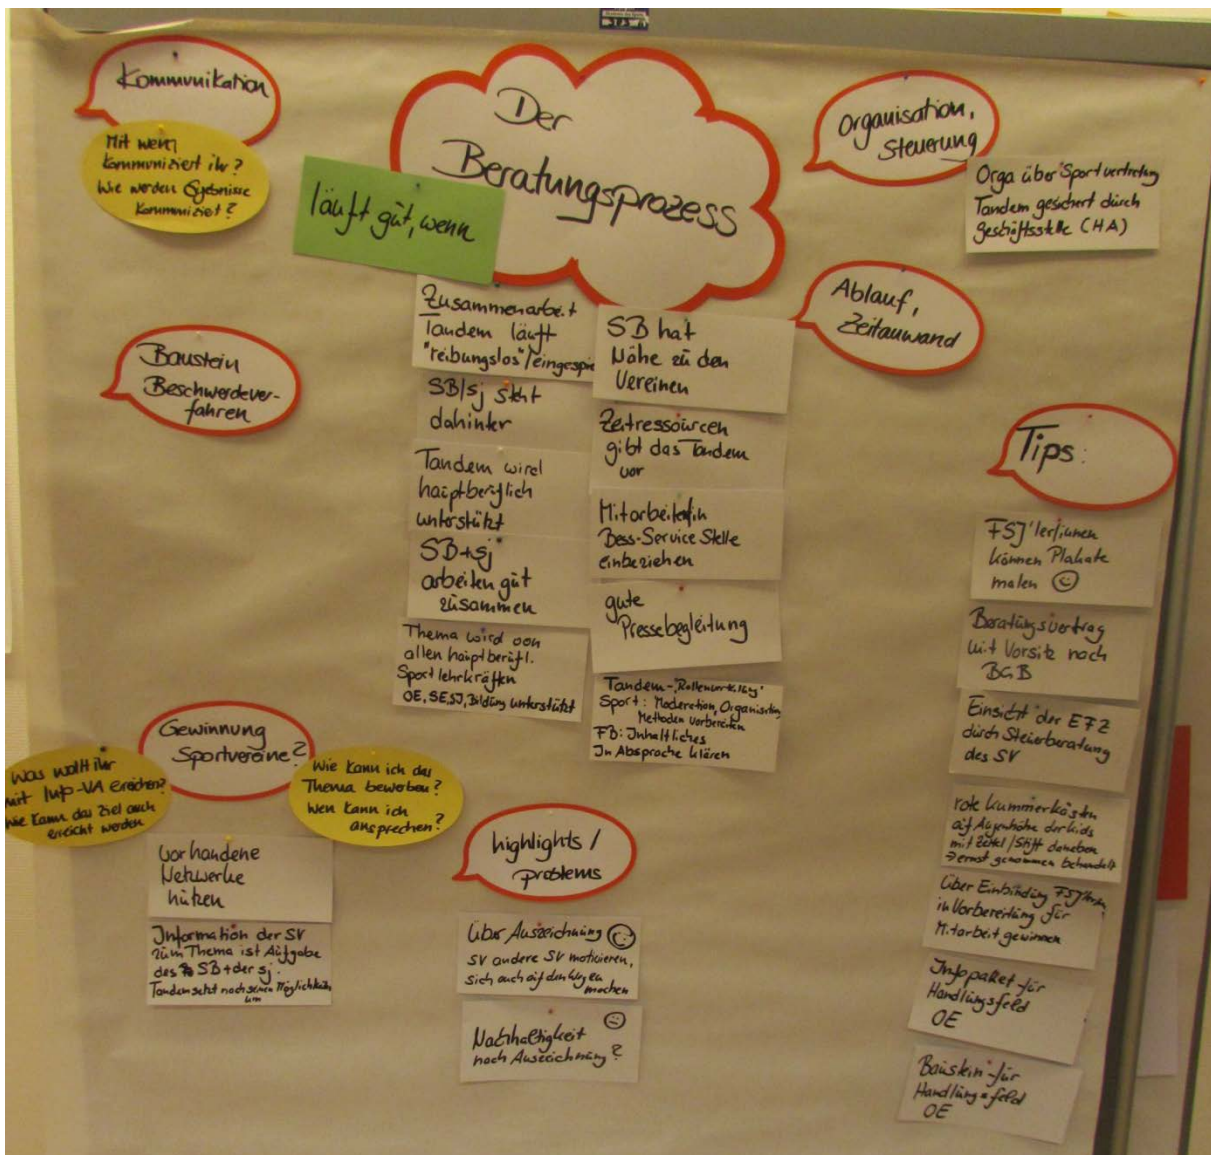 Kommunikation
Mit wem
kommuniziert ihr?
Wie werden Ergebnisse
kommuniziert?
Der
Beratungsprozess
läuft gut, wenn
Organisation,
Steuerung
Orga über Sportvertretung
Tandem gesichert durch
Geschäftsstelle (HA)
Ablauf,
Zeitauwand
Baustein
Beschwerdever-
fahren
Zusammenarbeit
Tandem läuft
"reibungslos"/eingespie
SB/sj steht
dahinter
Tandem wird
hauptberuflich
unterstützt
SB+sj
arbeiten gut
zusammen
Thema wird von
allen hauptberufl.
Sportlehrkräften
OE, SE, SJ, Bildung unterstützt
SB hat
Nähe zu den
Vereinen
Zeitressourcen
gibt das Tandem
vor
Mitarbeiter/in
Bess-Service Stelle
einbeziehen
gute
Pressebegleitung
Tandem-"Rollenverteilung"
Sport: Moderation, Organisation
Methoden vorbereiten
FB: Inhaltliches
In Absprache klären
Tips:
FSJ'ler/innen
können Plakate
malen
Beratungsvertrag
mit Vorsitz nach
BGB
Einsicht der EFZ
durch Steuerberatung
des SV
rote Kummerkästen
auf Augenhöhe der Kids
mit Zettel/Stift daneben
→ ernst genommen behandelt
über Einbindung FSJ'lern
in Vorbereitung für
Mitarbeit gewinnen
Infopaket für
Handlungsfeld
OE
Baustein für
Handlungsfeld
OE
Gewinnung
Sportvereine?
Was wollt ihr
mit Info-VA erreichen?
Wie kann das Ziel auch
erreicht werden
Wie kann ich das
Thema bewerben?
Wen kann ich
ansprechen?
vorhandene
Netzwerke
nutzen
Information der SV
zum Thema ist Aufgabe
des SB + der sj.
Tandem setzt nach seinen Möglichkeiten
um
highlights/
problems
über Auszeichnung
SV andere SV motivieren,
sich auch auf den Weg zu
machen
Nachhaltigkeit
nach Auszeichnung?